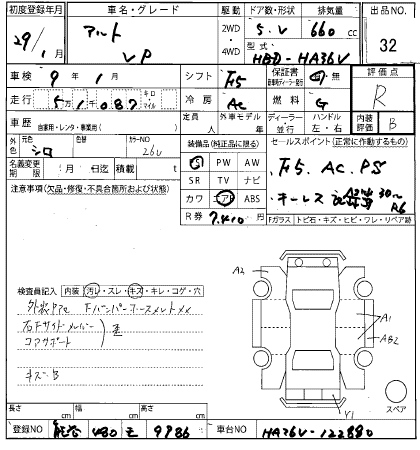 初度登録年月 車名・グレード 駆動 ドア数・形状 排気量 出品NO.
29/1 アルト VP 2WD ・ 4WD 5.V 660 cc 32
型式 HBD-HA36V
車検 9年1月 シフト F5 保証書 有・無 評価点
走行 5万1087 キロ マイル 冷房 AC 燃料 G R
車歴 自家用・レンタ・事業用( ) 定員 人 外車モデル 年 ディーラー・並行 ハンドル 左・右 内装評価 B
外色 元色 シロ 色替 カラーNO 26U 装備品(純正品に限る) セールスポイント(正常に動作するもの)
名義変更期限 月 日迄 積載量 t PS PW AW F5. AC. PS
注意事項(欠品・修復・不具合箇所および状態) SR TV ナビ キーレス
カワ エアB ABS
R券 7,410 円 Fガラス トビ石・キズ・ヒビ・ワレ・リペア跡
検査員記入 内装 汚れ・スレ・キズ・キレ・コゲ・穴
右Fサイドメンバー
コアサポート
キズ B
A2
A1
AB2
Y1
スペア
長さ cm 幅 cm 高さ cm
登録NO 480 9986 車台NO HA36V-122880